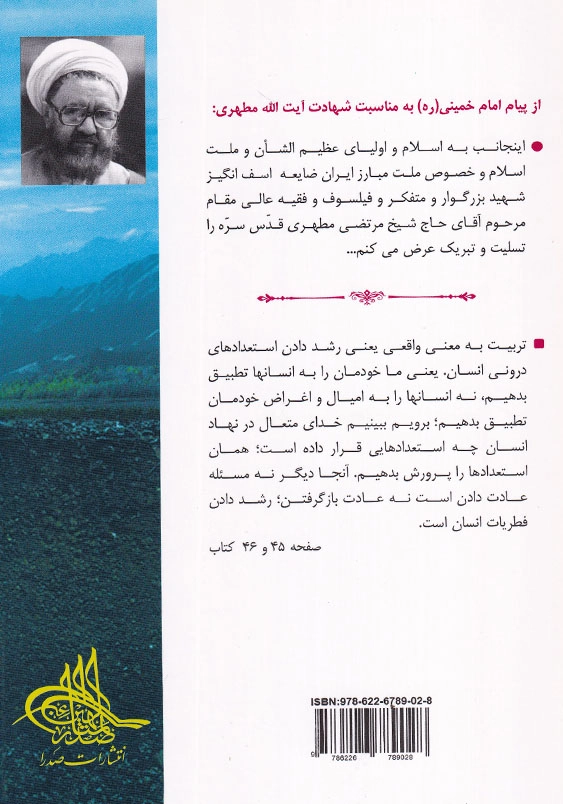 از پیام امام خمینی(ره) به مناسبت شهادت آیت الله مطهری:
● اینجانب به اسلام و اولیای عظیم الشأن و ملت
اسلام و خصوص ملت مبارز ایران ضایعه اسف انگیز
شهید بزرگوار و متفکر و فیلسوف و فقیه عالی مقام
مرحوم آقای حاج شیخ مرتضی مطهری قدّس سرّه را
تسلیت و تبریک عرض می کنم...
■ تربیت به معنی واقعی یعنی رشد دادن استعدادهای
درونی انسان. یعنی ما خودمان را به انسانها تطبیق
بدهیم، نه انسانها را به امیال و اغراض خودمان
تطبیق بدهیم؛ برویم ببینیم خدای متعال در نهاد
انسان چه استعدادهایی قرار داده است؛ همان
استعدادها را پرورش بدهیم. آنجا دیگر نه مسئله
عادت دادن است نه عادت بازگرفتن؛ رشد دادن
فطریات انسان است.
صفحه ۴۵ و ۴۶ کتاب
انتشارات صدرا
ISBN:978-622-6789-02-8
9 786226 789028